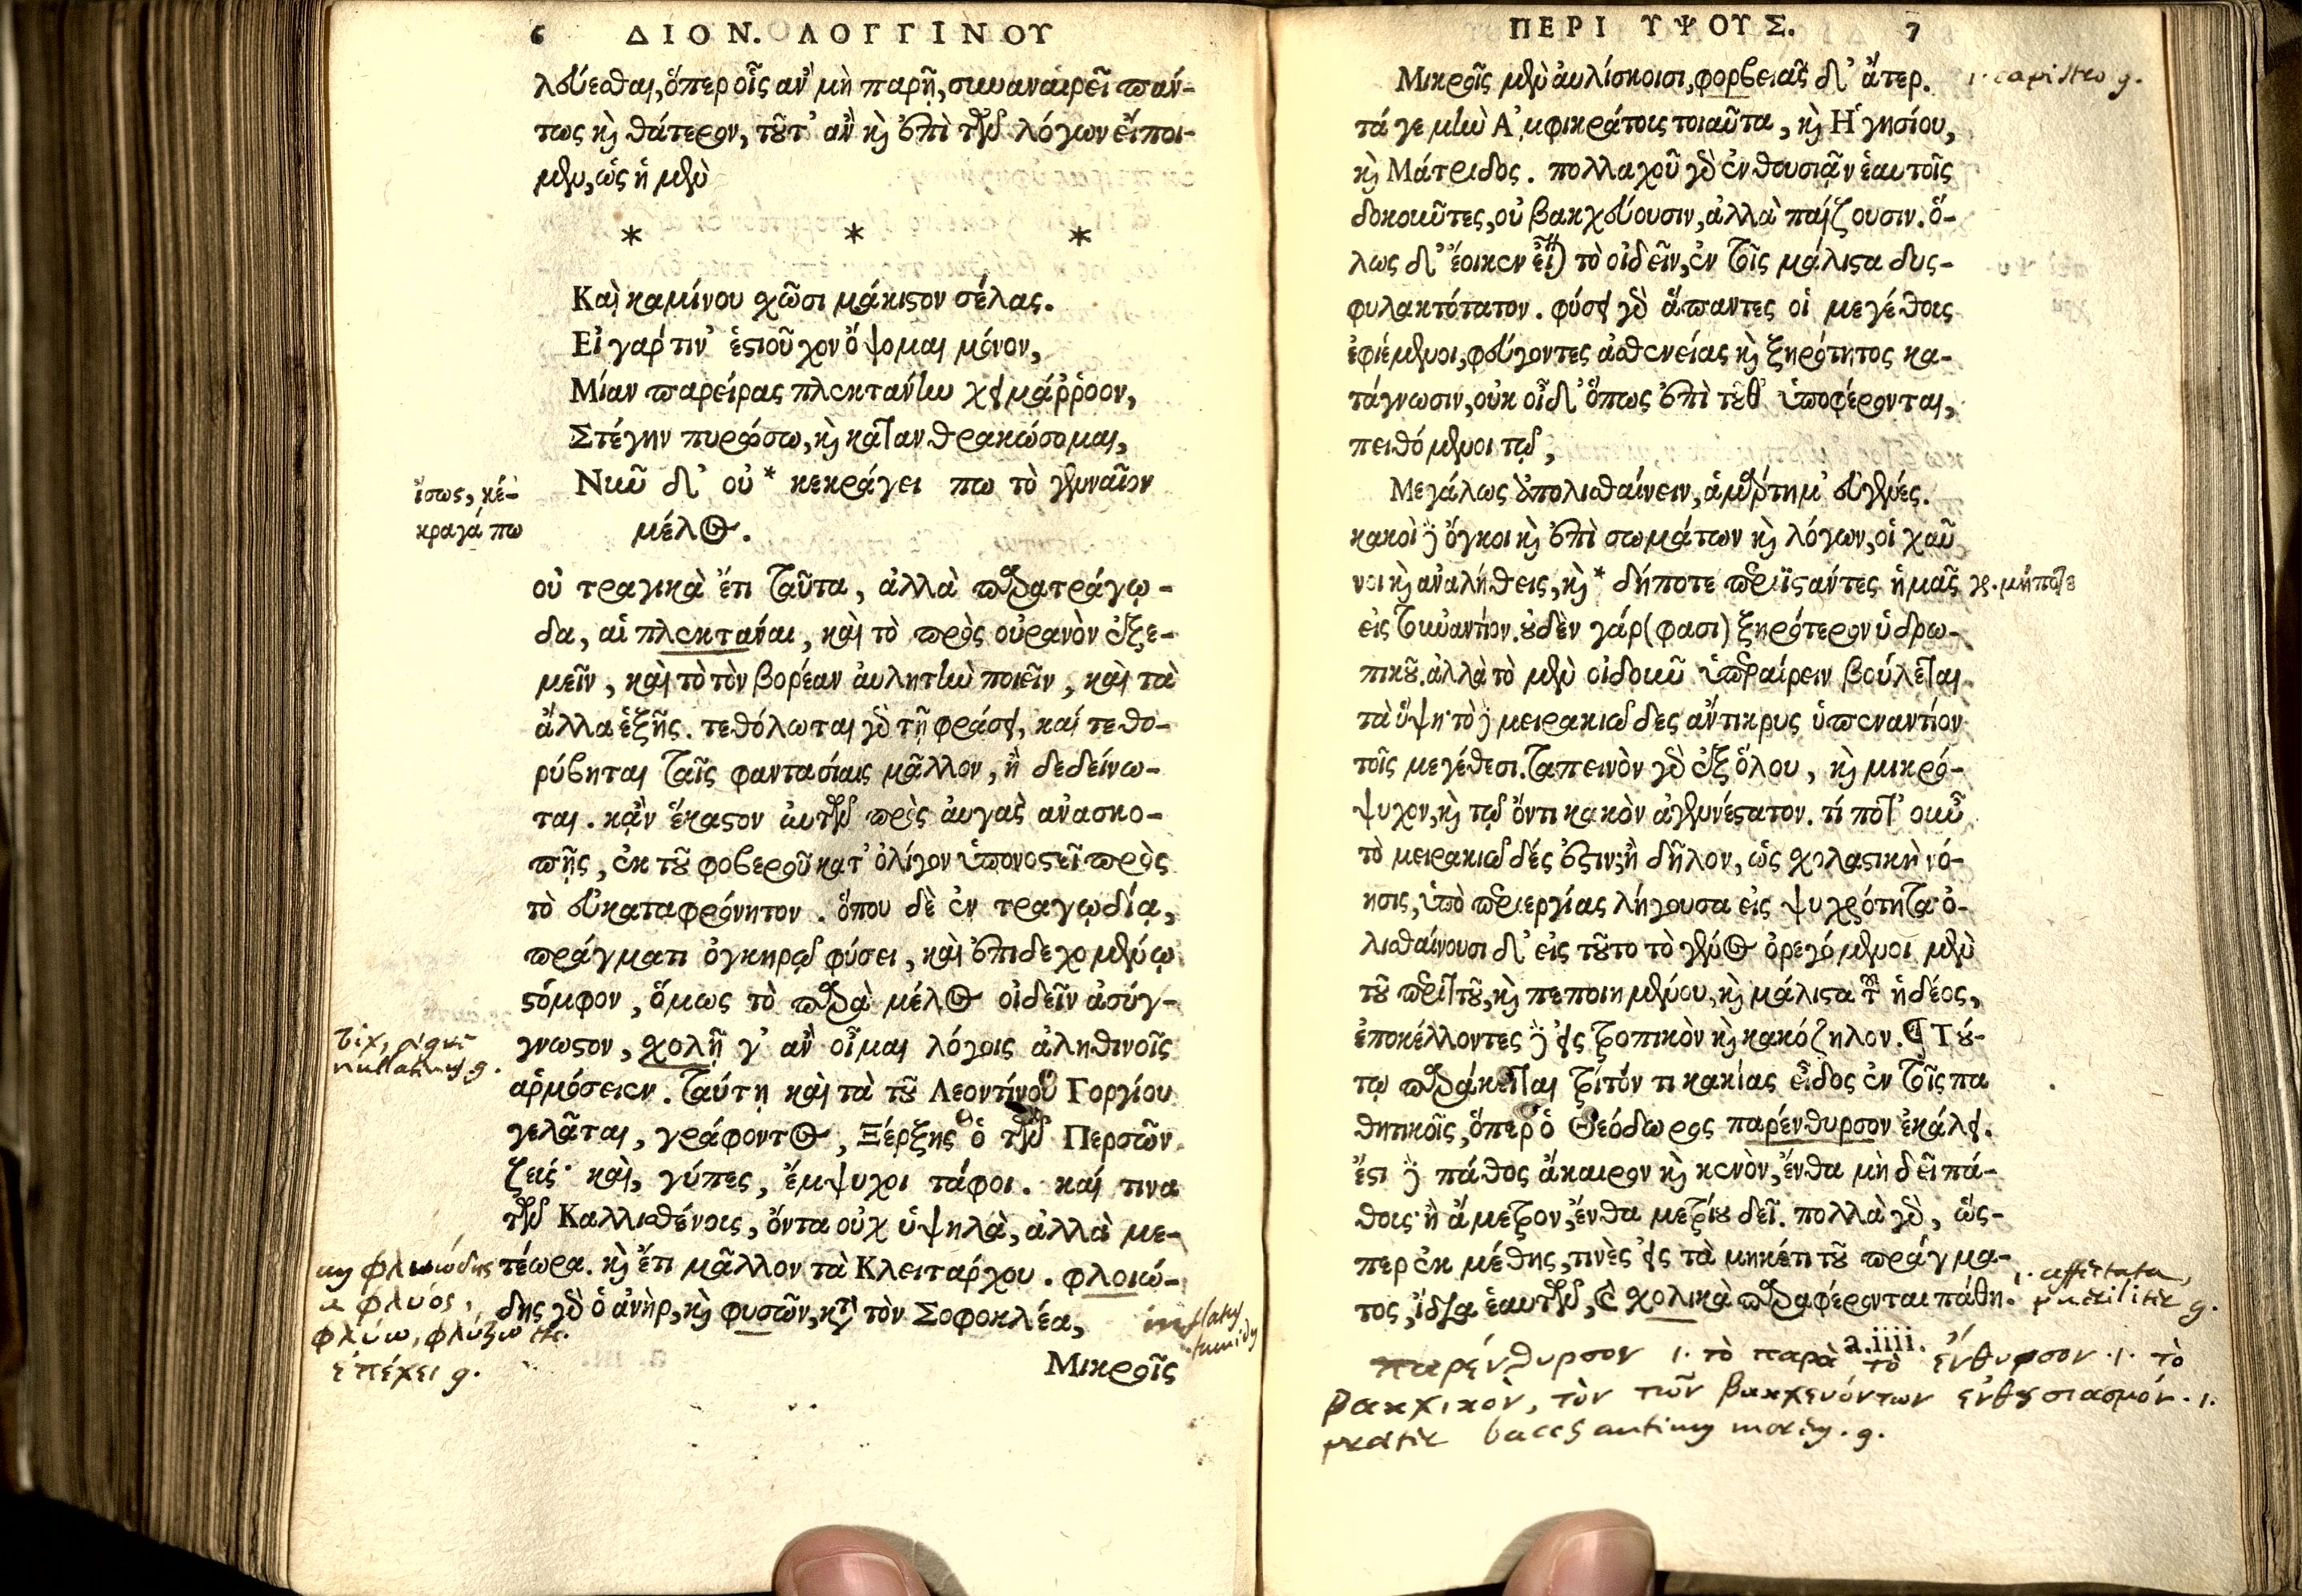 6 ΔΙΟΝ. ΛΟΓΓΙΝΟΥ
λεύεσθαι, ὅπερ οἷς ἂν μὴ παρῇ, συναναιρεῖ πάν-
τως καὶ θάτερον, τοῦτ' ἂν καὶ ἐπὶ τῶν λόγων εἴποι-
μεν, ὡς ἡ μὲν
* * *
Καὶ καμίνου σχῶσι μάκιστον σέλας.
Εἰ γάρ τιν' ἑστιοῦχον ὄψομαι μόνον,
Μίαν παρείρας πλεκτάνην χειμάῤῥοον,
Στέγην πυρώσω, καὶ κατανθρακώσομαι,
ἴσως, κέ-
κραγά πω
Νῦν δ' οὐ * κεκράγει πω τὸ γενναῖον
μέλος.
οὐ τραγικὰ ἔτι ταῦτα, ἀλλὰ παρατράγῳ-
δα, αἱ πλεκτάναι, καὶ τὸ πρὸς οὐρανὸν ἐξε-
μεῖν, καὶ τὸ τὸν βορέαν αὐλητὴν ποιεῖν, καὶ τὰ
ἄλλα ἑξῆς. τεθόλωται γὰρ τῇ φράσει, καὶ τεθο-
ρύβηται ταῖς φαντασίαις μᾶλλον, ἢ δεδείνω-
ται. κἂν ἕκαστον αὐτῶν πρὸς αὐγὰς ἀνασκο-
πῇς, ἐκ τοῦ φοβεροῦ κατ' ὀλίγον ὑπονοστεῖ πρὸς
τὸ εὐκαταφρόνητον. ὅπου δὲ ἐν τραγῳδίᾳ,
πράγματι ὀγκηρῷ φύσει, καὶ ἐπιδεχομένῳ
στόμφον, ὅμως τὸ παρὰ μέλος οἰδεῖν ἀσύγ-
γνωστον, σχολῇ γ' ἂν οἶμαι λόγοις ἀληθινοῖς
ἁρμόσειεν. ταύτῃ καὶ τὰ τοῦ Λεοντίνου Γοργίου
γελᾶται, γράφοντος, Ξέρξης ὁ τῶν Περσῶν
ζεύς· καὶ, γύπες, ἔμψυχοι τάφοι. καί τινα
τῶν Καλλισθένοις, ὄντα οὐχ ὑψηλὰ, ἀλλὰ με-
τέωρα. καὶ ἔτι μᾶλλον τὰ Κλειτάρχου. φλοιώ-
δης γὰρ ὁ ἀνὴρ, καὶ φυσῶν, κατὰ τὸν Σοφοκλέα,
φλύω, φλύζω
ἐπέχει g.
Μικροῖς
ΠΕΡΙ ΥΨΟΥΣ. 7
Μικροῖς μὲν αὐλίσκοισι, φορβειᾶς δ' ἄτερ.
ι. capistro g.
τά γε μὴν Ἀμφικράτοις τοιαῦτα, καὶ Ἡγησίου,
καὶ Μάτριδος. πολλαχοῦ γὰρ ἐνθουσιᾷν ἑαυτοῖς
δοκοῦντες, οὐ βακχεύουσιν, ἀλλὰ παίζουσιν. ὅ-
λως δ' ἔοικεν εἶναι τὸ οἰδεῖν, ἐν τοῖς μάλιστα δυς-
φυλακτότατον. φύσει γὰρ ἅπαντες οἱ μεγέθοις
ἐφιέμενοι, φεύγοντες ἀσθενείας καὶ ξηρότητος κα-
τάγνωσιν, οὐκ οἶδ' ὅπως ἐπὶ τοῦθ' ὑποφέρονται,
πειθόμενοι τῷ,
Μεγάλως ἀπολισθαίνειν, ἁμάρτημ' εὐγενές.
κακοὶ δὲ ὄγκοι καὶ ἐπὶ σωμάτων καὶ λόγων, οἱ χαῦ
νοι καὶ ἀναλήθεις, καὶ * δήποτε περιϊστάντες ἡμᾶς
γρ. μήποτε
εἰς τοὐναντίον. οὐδὲν γάρ (φασι) ξηρότερον ὑδρω-
πικοῦ. ἀλλὰ τὸ μὲν οἰδοῦν ὑπεραίρειν βούλεται
τὰ ὕψη· τὸ δὲ μειρακιῶδες ἄντικρυς ὑπεναντίον
τοῖς μεγέθεσι. ταπεινὸν γὰρ ἐξ ὅλου, καὶ μικρό-
ψυχον, καὶ τῷ ὄντι κακὸν ἀγεννέστατον. τί ποτ' οὖν
τὸ μειρακιῶδές ἐστιν; ἢ δῆλον, ὡς σχολαστικὴ νό-
ησις, ὑπὸ περιεργίας λήγουσα εἰς ψυχρότητα· ὀ-
λισθαίνουσι δ' εἰς τοῦτο τὸ γένος ὀρεγόμενοι μὲν
τοῦ περιττοῦ, καὶ πεποιημένου, καὶ μάλιστα τοῦ ἡδέος,
ἐποκέλλοντες δὲ εἰς τροπικὸν καὶ κακόζηλον. ¶ Τού-
τῳ παράκειται τρίτόν τι κακίας εἶδος ἐν τοῖς πα
θητικοῖς, ὅπερ ὁ Θεόδωρος παρένθυρσον ἐκάλει.
ἔστι δὲ πάθος ἄκαιρον καὶ κενὸν, ἔνθα μὴ δεῖ πά-
θοις· ἢ ἄμετρον, ἔνθα μετρίου δεῖ. πολλὰ γὰρ, ὥς-
περ ἐκ μέθης, τινὲς εἰς τὰ μηκέτι τοῦ πράγμα-
τος, ἴδια ἑαυτῶν, καὶ σχολικὰ παραφέρονται πάθη.
a.iiii.
παρένθυρσον ι. τὸ παρὰ τὸ ἔνθυρσον .ι. τὸ
βακχικὸν, τὸν τῶν βακχευόντων ἐνθουσιασμόν .ι.